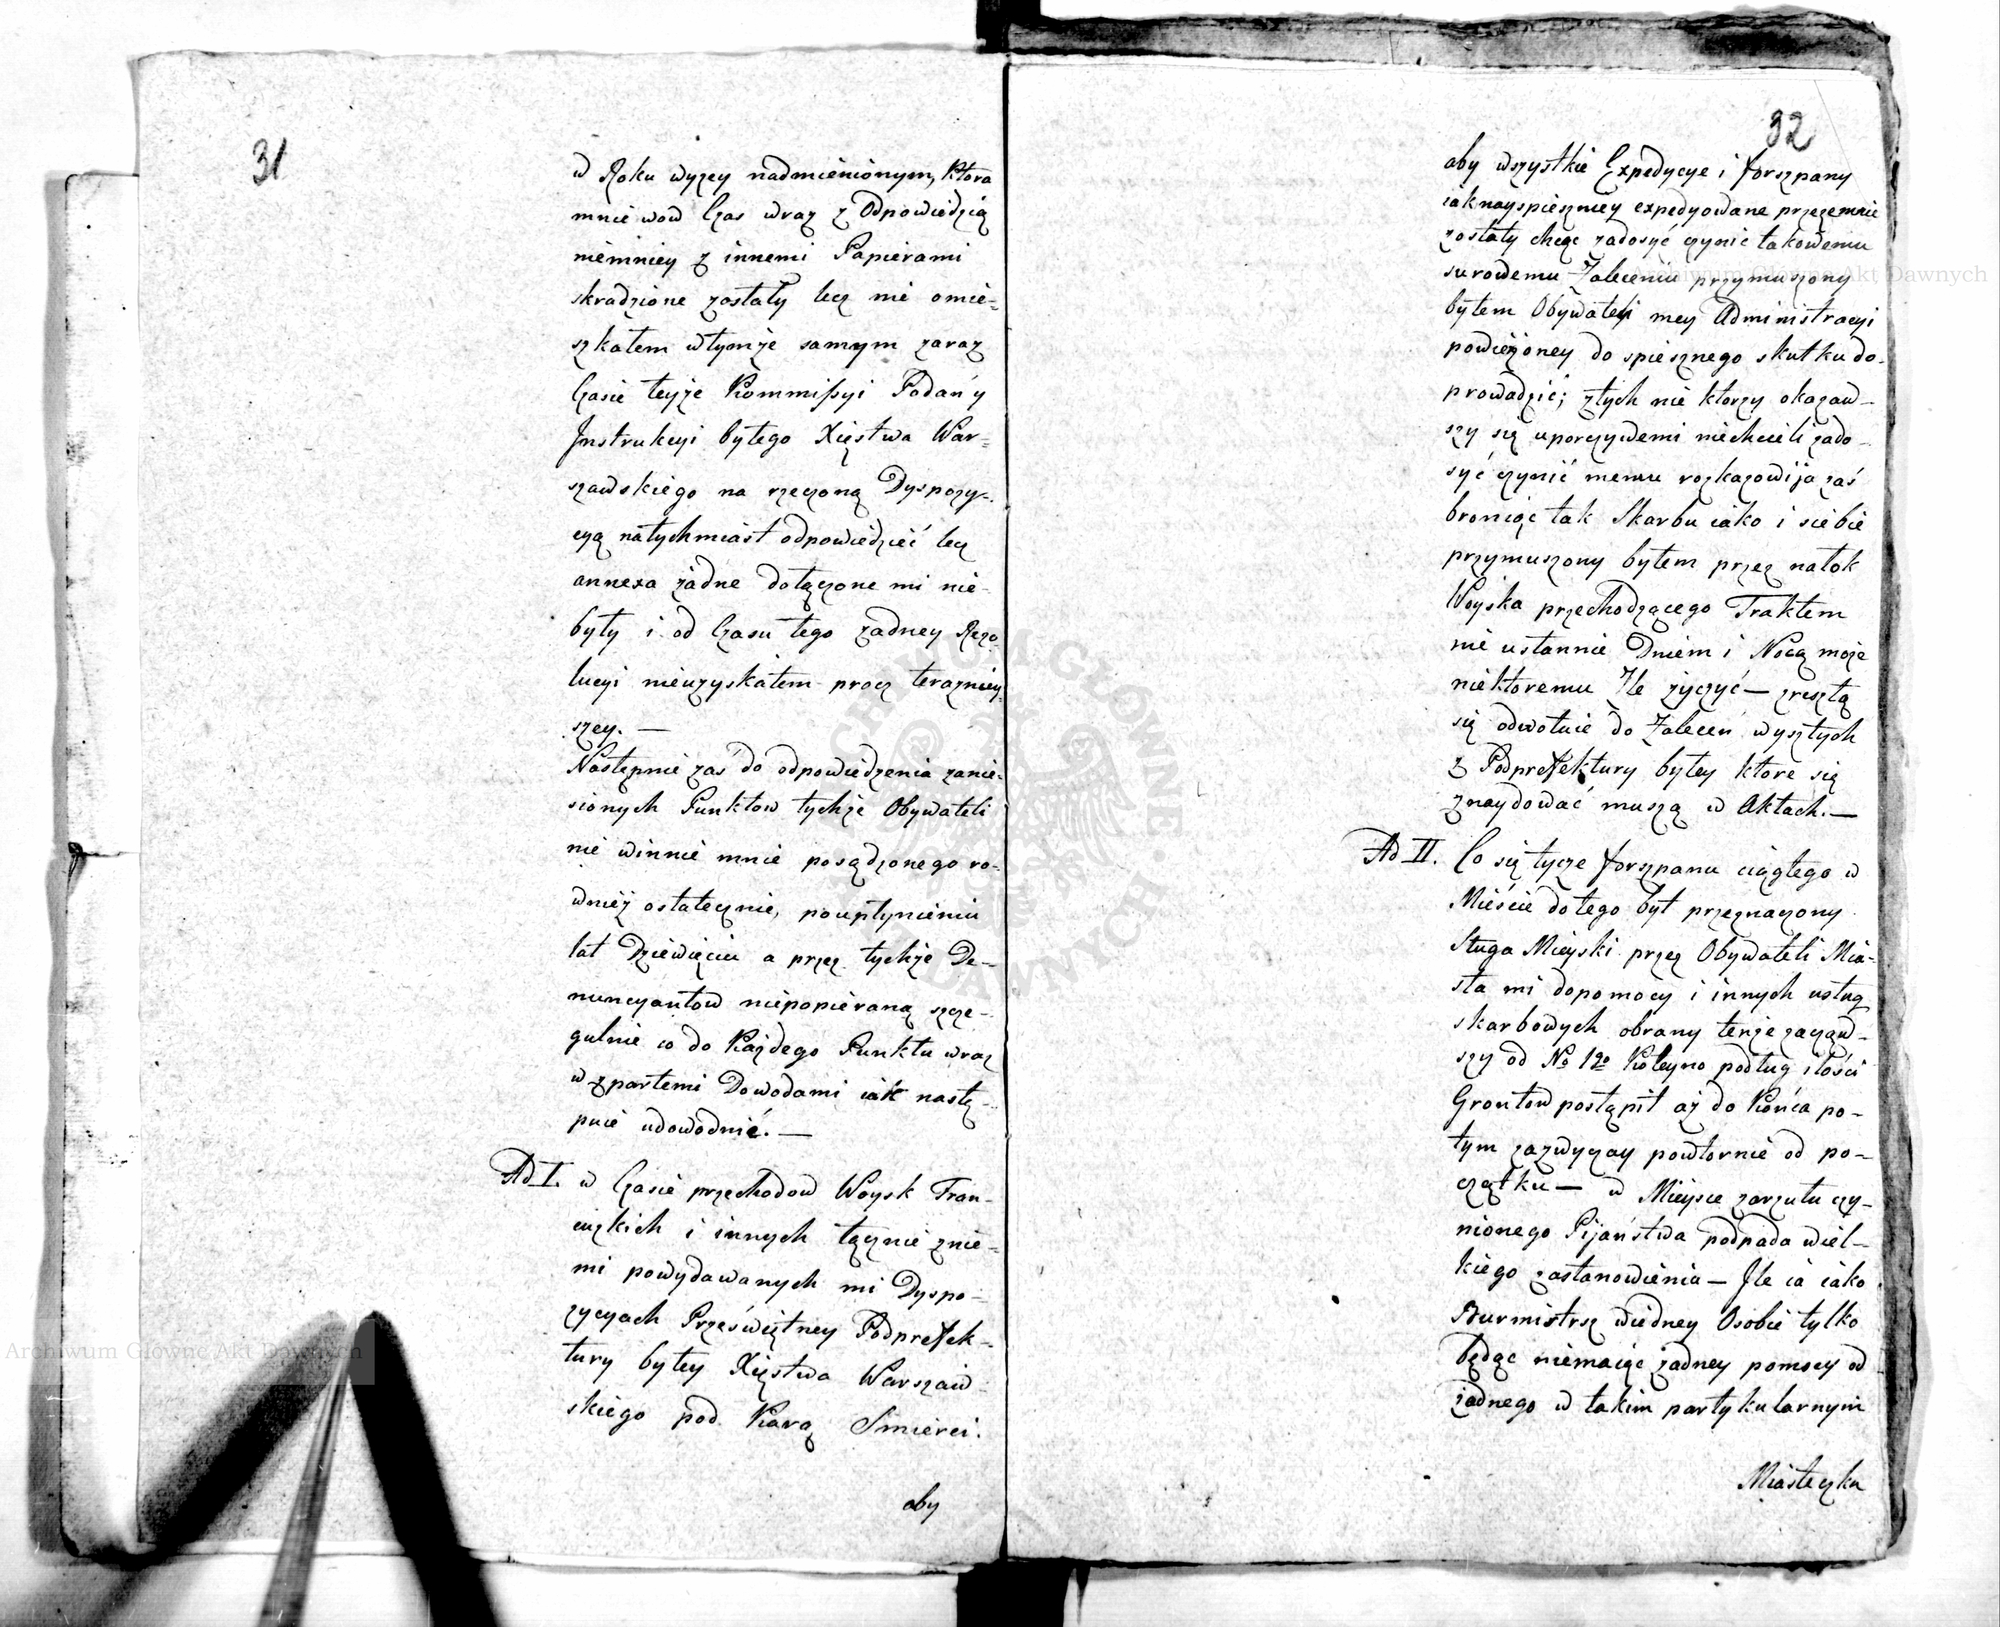 31
w Roku wyzey nadmienionym, ktora
mnie wow Czas wraz z Odpowiedzią
niemniey z innemi Papierami
skradzione zostały lecz nie omie=
szkałem wtymże samym zaraz
Czasie teyże Kommissyi Podań y
Jnstrukcyi byłego Xięstwa War=
szawskiego na rzeczoną Dyspozy=
cyą natychmiast odpowiedzieć lecz
annexa żadne dołączone mi nie-
były i od Czasu tego żadney Rezo-
lucyi nieuzyskałem procz teraznièy-
szey. —
Następnie zaś do odpowiedzenia zanie-
sionych Punktow tychże Obywateli
nie winnie mnie posądzonego ro-
wnież ostatecznie, poupłynieniu
lat Dziewięciu a przez tychże De-
nuncyantow niepopieraną szcze-
gulnie co do Każdego Punktu wraz
w zpartemi Dowodami iak nastę-
puie udowodnić. —
Ad I. w Czasie przechodow Woysk Fran-
cuzkich i innych łącznie znie=
mi powydawanych mi Dyspo-
zycyach Przeświętney Podprefek-
tury byłey Xięstwa Warszaw-
skiego pod Karą Smierci.
aby
32
aby wszystkie Expedycye i forszpany
iaknayspieszniey expedyowane przezemnie
zostały chcąc zadosyć czynić takowemu
surowemu Zaleceniu przymuszony
byłem Obywateli mey Administracyi
powierzoney do spiesznego skutku do-
prowadzić; ztych nie ktorzy okazaw-
szy się uporczywemi niechcieli zado-
syć czynić memu rozkazowi ja zaś
broniąc tak Skarbu iako i siebie
przymuszony byłem przez natłok
Woyska przechodzącego Traktem
nie ustannie Dniem i Nocą moze
niektoremu Zle życzyć — zresztą
się odwołuie do Zaleceń wyszłych
z Podprefektury byłey ktore się
znaydować muszą w Aktach. —
Ad II. Co się tycze forszpanu ciągłego w
Mieście do tego był przeznaczony
Sługa Mieyski przez Obywateli Mia-
sta mi dopomocy i innych usług
skarbowych obrany tenże zacząw-
szy od No 1go Koleyno podług ilości
Grontow postąpił aż do Końca po-
tym zazwyczay powtornie od po-
czątku — w Mieysce zarzutu czy-
nionego Pijaństwa podpada wiel-
kiego zastanowienia — Jle ia iako
Burmistrz wiedney Osobie tylko
będąc niemaiąc żadney pomocy od
żadnego w takim partykularnym
Miasteczku
Archiwum Główne Akt Dawnych
Archiwum Główne Akt Dawnych
ARCHIWUM GŁÓWNE AKT DAWNYCH